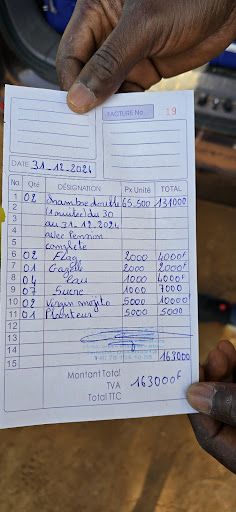 FACTURE No. 19
DATE 31-12-2024
No. Qté DÉSIGNATION Px Unité TOTAL
1 02 Chambre double 65.500 131000
2 (1 nuitée) du 30
3 au 31-12-2024
4 avec Pension
5 complète
6 02 Flag 2000 4000F
7 01 Gazelle 2000 2000F
8 04 Eau 1000 4000F
9 07 Sucre 1000 7000
10 02 Virgin mojito 5000 10000
11 01 Planteur 5000 5000
12
13
14 163000
15
Montant Total
TVA 163000F
Total TTC